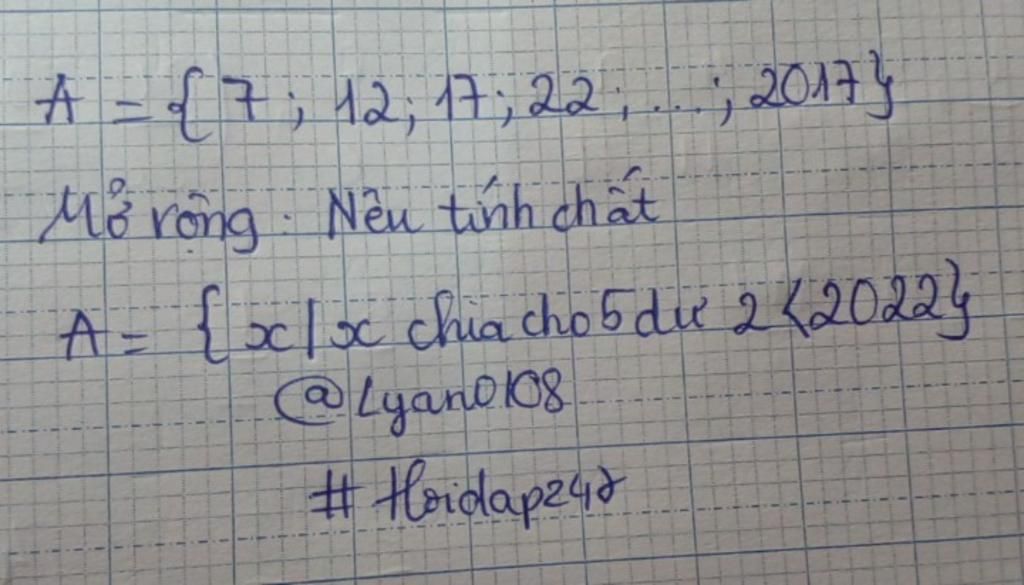 A = {7 ; 12 ; 17 ; 22 ; ... ; 2017}
Mở rộng : Nêu tính chất
A = {x / x chia cho 5 dư 2 < 2022}
@Lyan0108
# Hoidap247